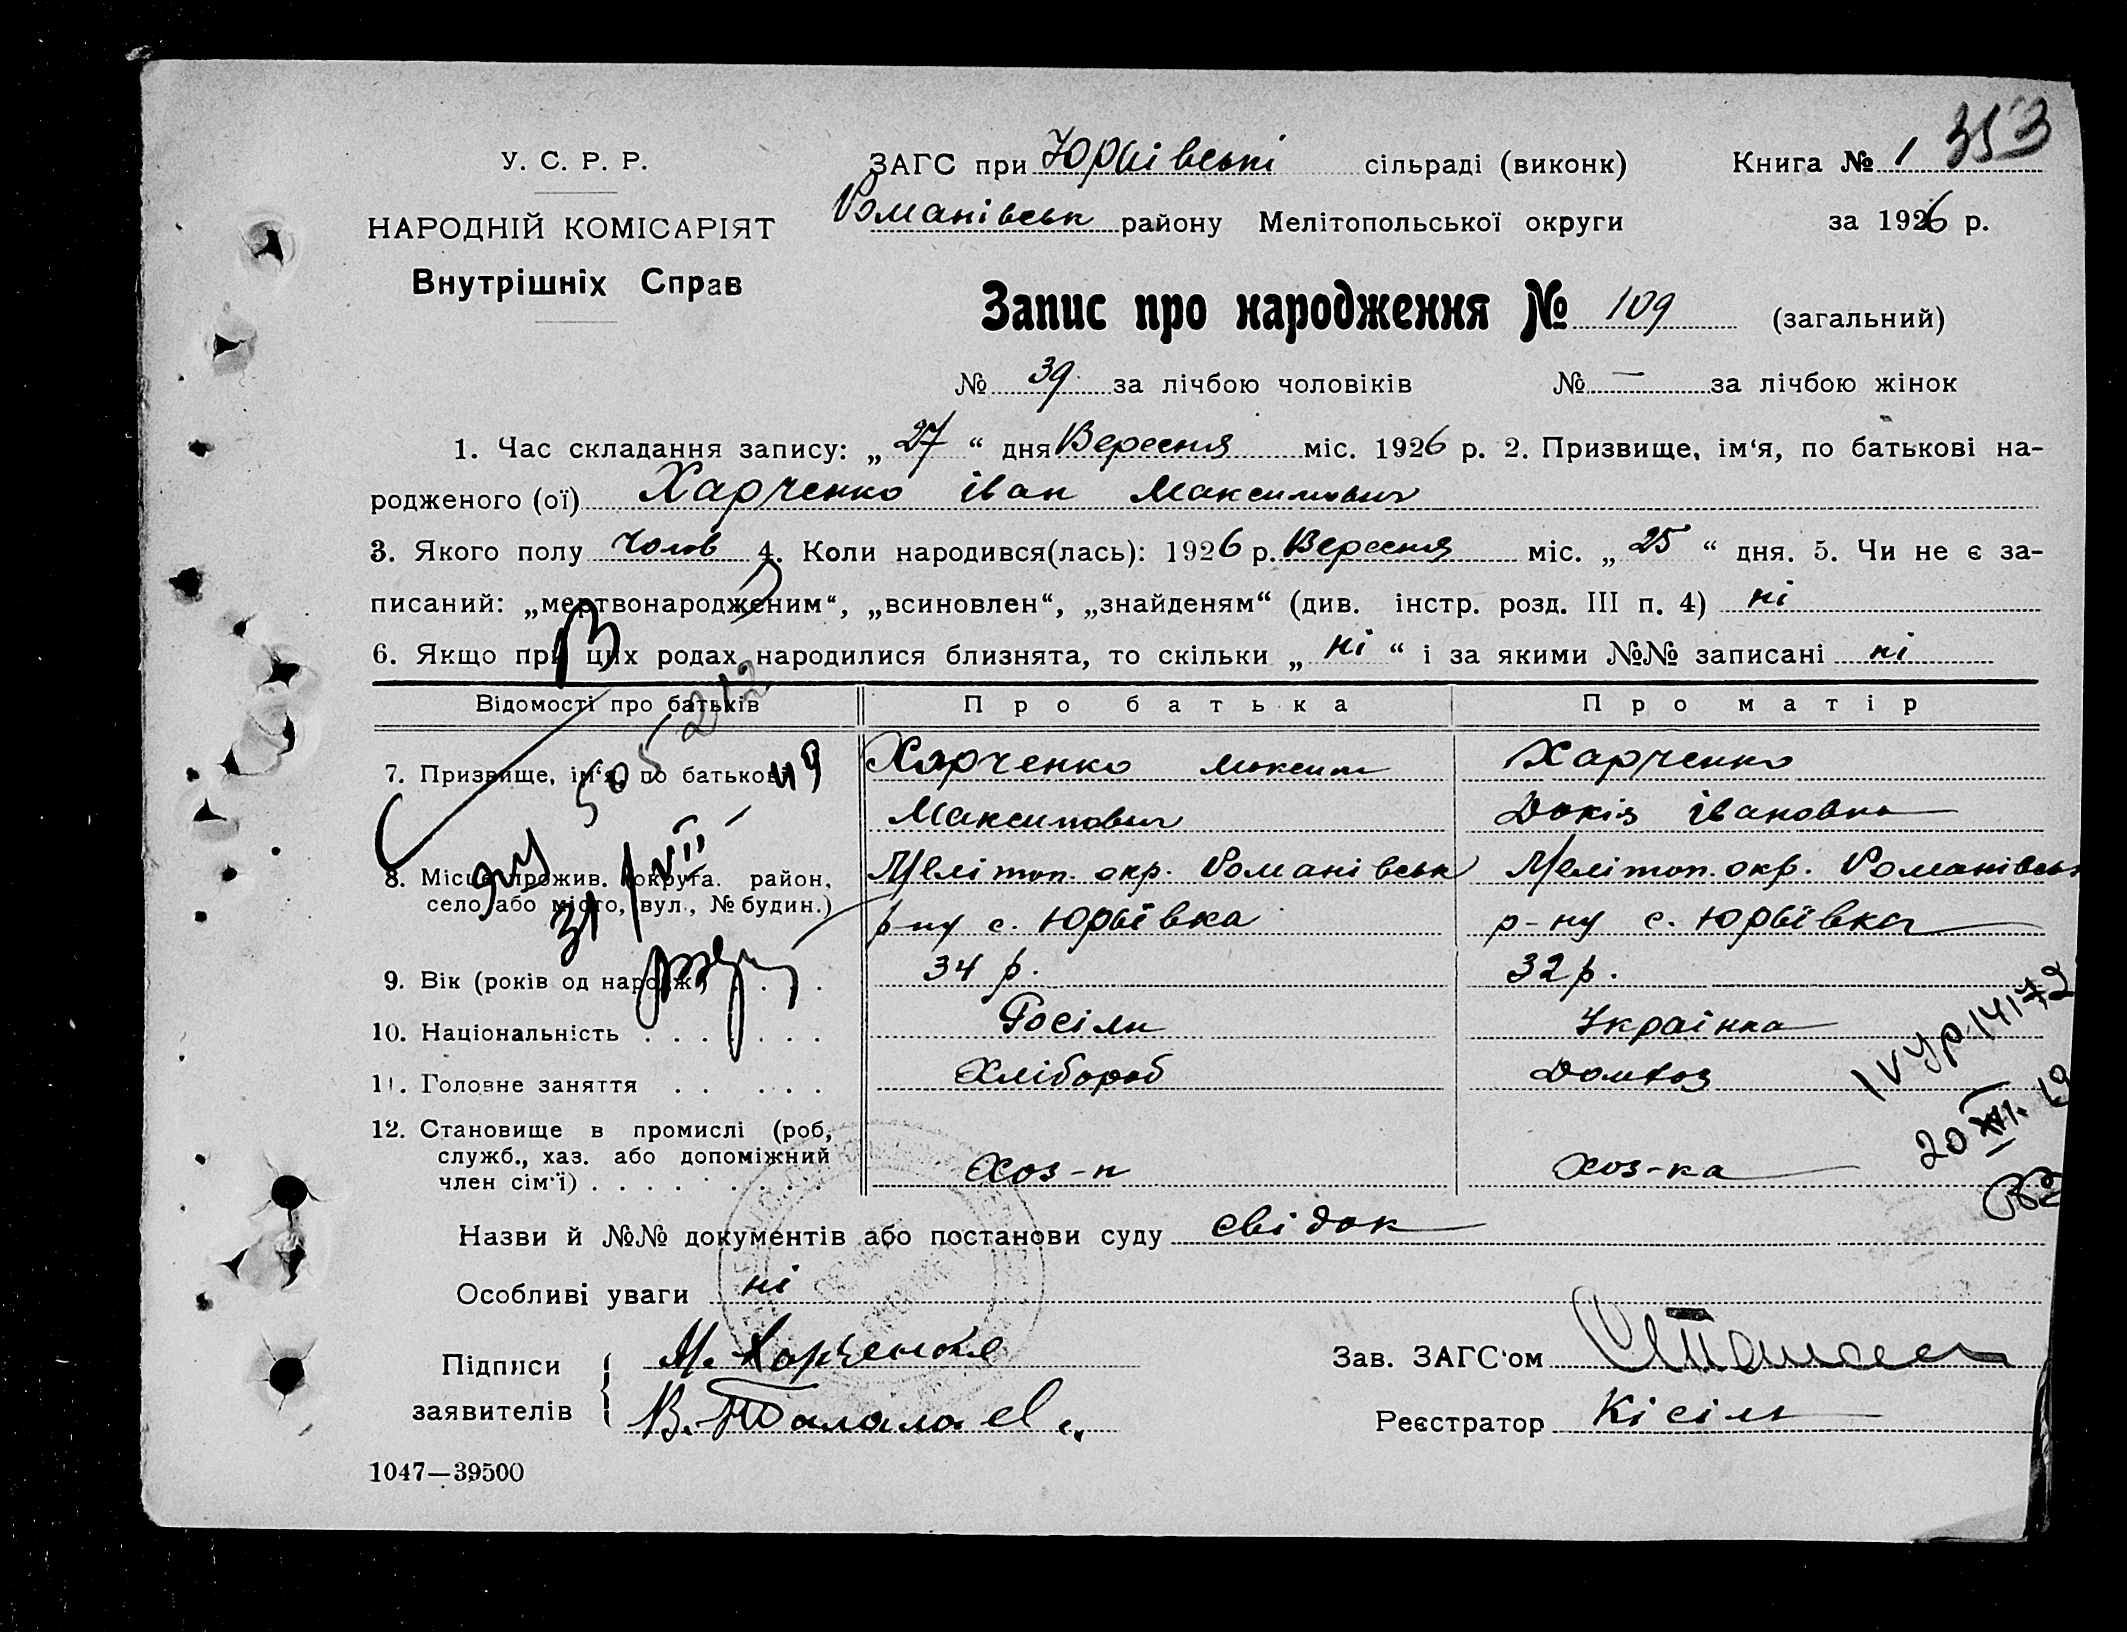 353
У. С. Р. Р.
ЗАГС при Юріівські сільраді (виконк) Книга № 1
НАРОДНІЙ КОМІСАРІЯТ Романівськ району Мелітопольської округи за 1926 р.
Внутрішніх Справ
Запис про народження № 109 (загальний)
№ 39 за лічбою чоловіків № — за лічбою жінок
1. Час складання запису: „ 27 “ дня Вересня міс. 1926 р. 2. Призвище, ім‘я, по батькові на-
родженого (ої) Харченко іван Максимович
3. Якого полу Чолов 4. Коли народився(лась): 1926 р. Вересня міс. „ 25 “ дня. 5. Чи не є за-
писаний: „мертвонародженим“, „всиновлен“, „знайденям“ (див. інстр. розд. III п. 4) ні
6. Якщо при цих родах народилися близнята, то скільки „ ні “ і за якими №№ записані ні
Відомості про батьків Про батька Про матір
7. Призвище, ім‘я, по батькові Харченко Максим Харченко
Максимович Докія івановна
8. Місце прожив. (округа. район, Меліт��п. окр. Романівськ Мелітоп. окр. Романівськ
село або місто, вул., № будин.) р-ну с. Юрьівка р-ну с. Юрьівка
9. Вік (років од народж.) 34 р. 32 р.
10. Національність Росіян Украінка
11. Головне заняття Хлібороб Домхоз
12. Становище в промислі (роб,
служб., хаз. або допоміжний Хоз-н Хоз-ка
член сім‘ї)
Назви й №№ документів або постанови суду свідок
Особливі уваги ні
Підписи М. Харченко Зав. ЗАГС‘ом
заявителів В. Талалаев Реєстратор Кісіль
1047—39500